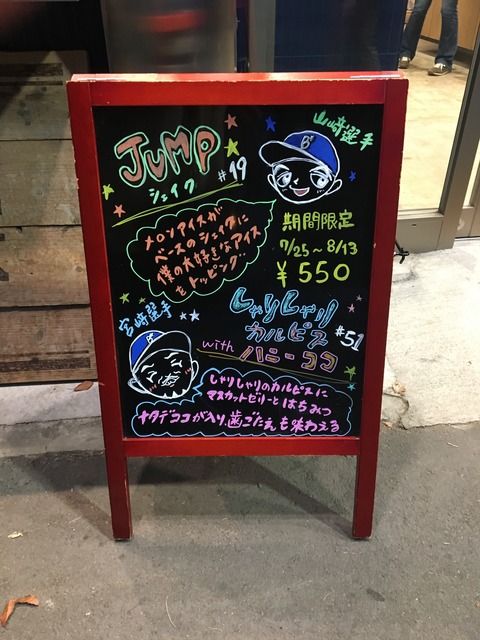 JUMP
シェイク
#19
山﨑選手
B
メロンアイスが
ベースのシェイクに
僕の大好きなアイス
をトッピング..
期間限定
7/25〜8/13
¥550
宮﨑選手
しゃりしゃり
カルピス
#51
with ハニーココ
B
しゃりしゃりのカルピスに
マスカットゼリーとはちみつ
ナタデココが入り、歯ごたえも味わえる